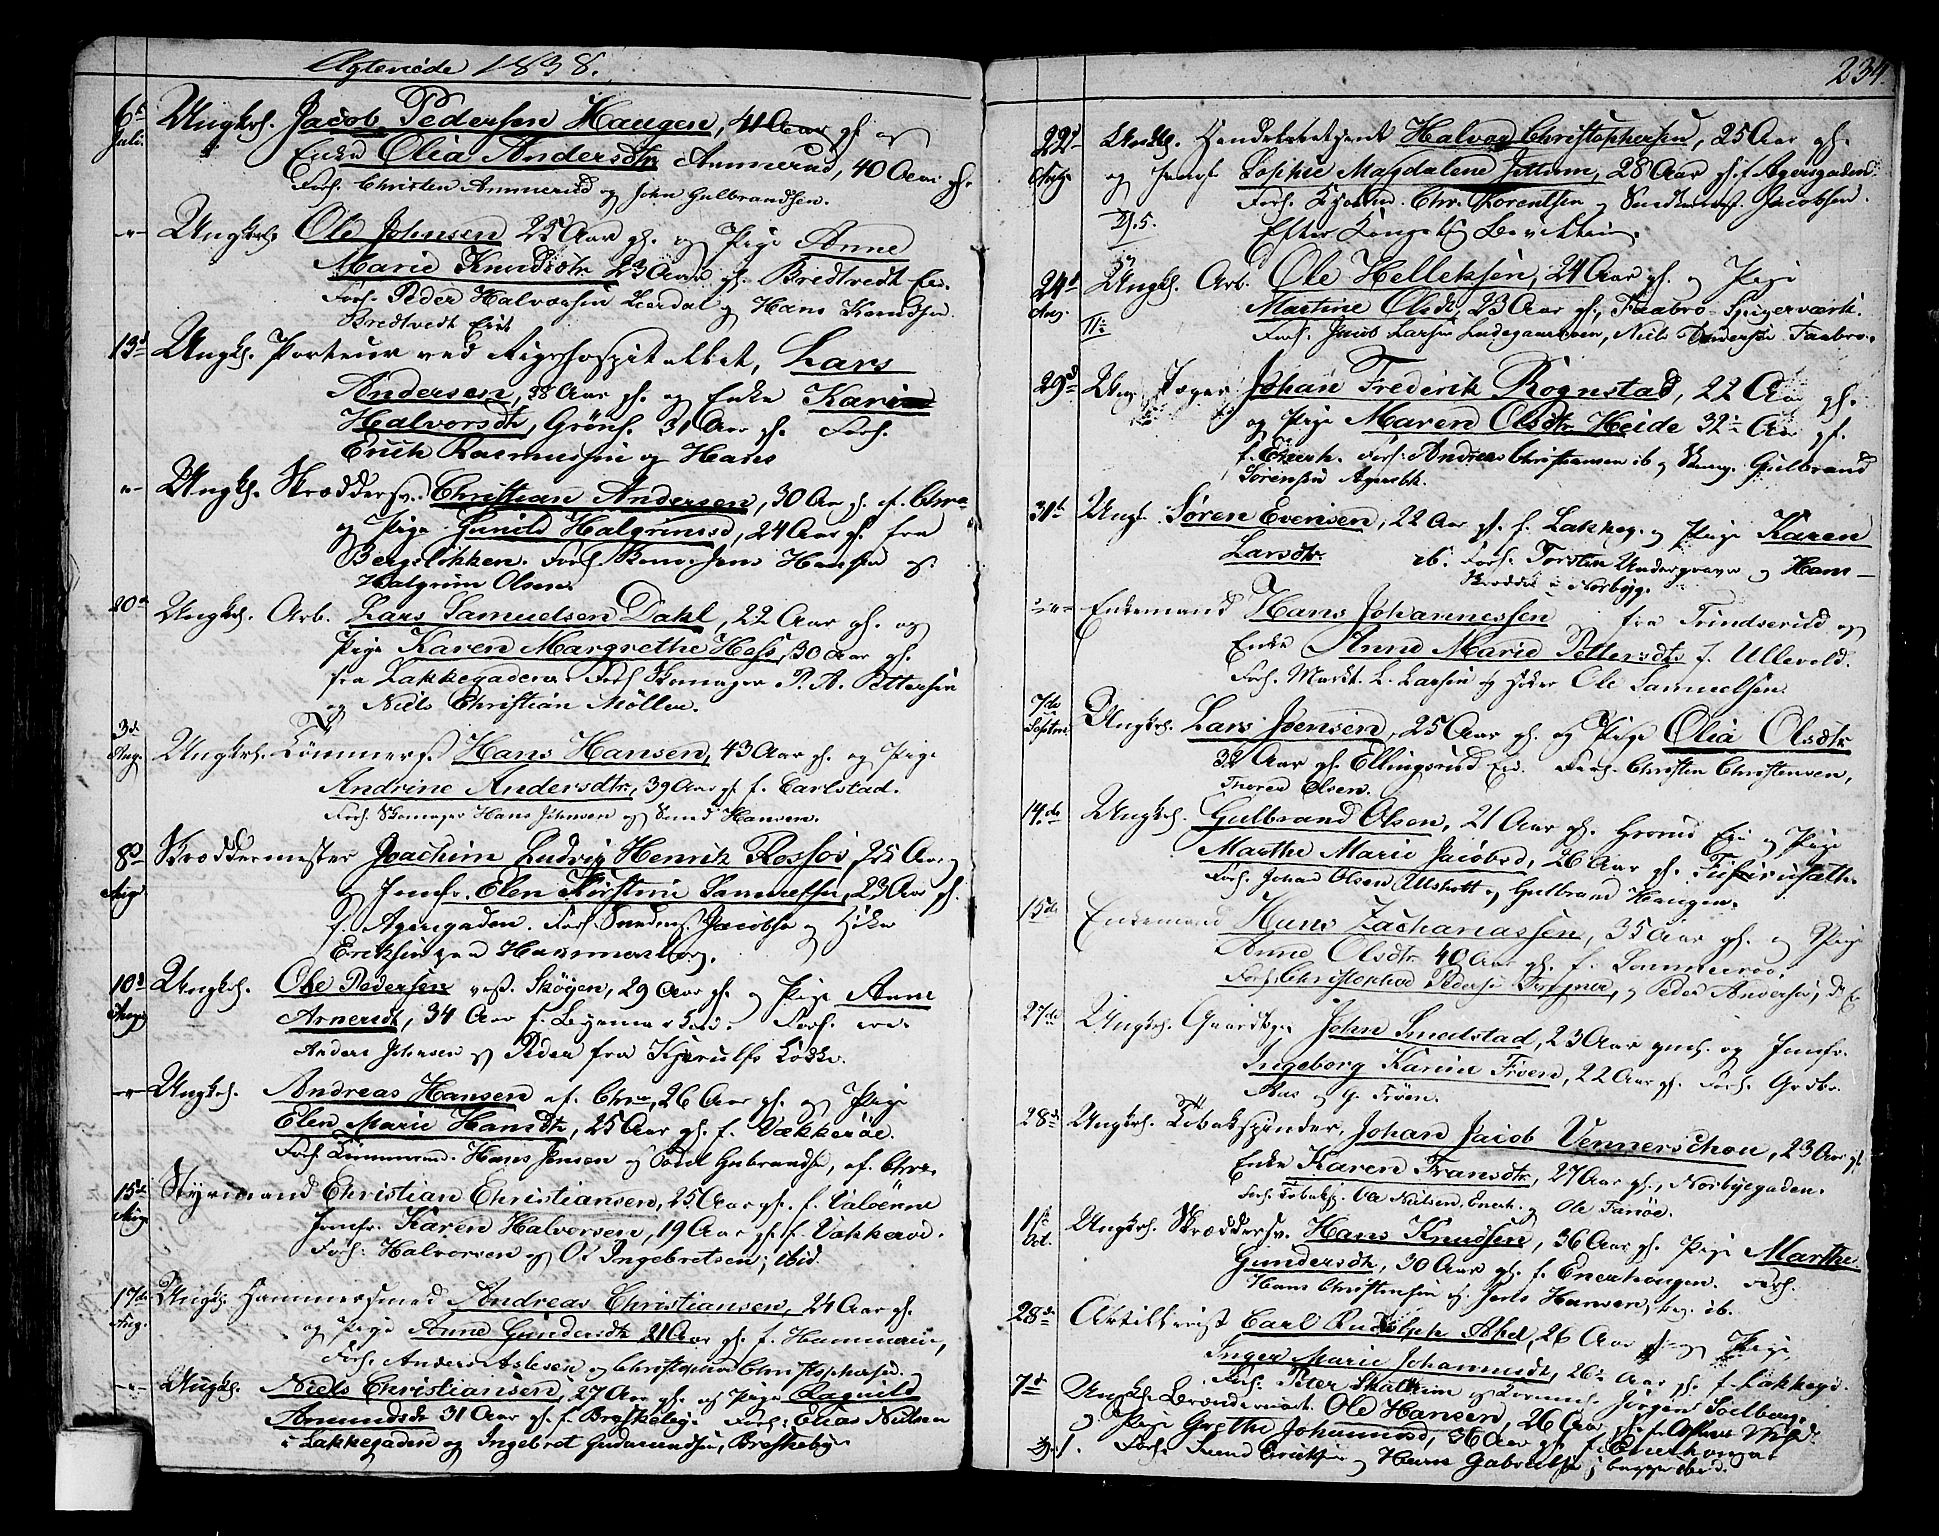 Ægteviede 1838.
6te Juli. Ungkrl. Jacob Pedersen Haugen, 41 Aar gl. og
Enke Olia Andersdtr Ammerud, 40 Aar gl.
Forl. Christen Ammerud og John Gulbrandsen.
-"- Ungkrl. Ole Johnsen 25 Aar gl. og Pige Anne
Marie Knudsdtr 23 Aar gl. Bredtvedt Eie.
Forl. Peder Halvorsen Leerdal og Hans Knudsen
Bredtvedt Eie
13d Ungkl. Porteur ved Rigshospitallet, Lars
Andersen, 38 Aar gl. og Enke Kari
Halvorsdtr, Grønl. 31 Aar gl. Forl.
Erich Rasmussen og Hans
-"- Ungkl. Skræddersv. Christian Andersen, 30 Aar gl. af Chra
og Pige Gunild Halgrimsd, 24 Aar gl. fra
Bergsløkken. Forl. Jens Hansen og
Halgrim Olsen.
20de Ungkrl. Arb. Lars Samuelsen Dahl, 22 Aar gl. og
Pige Karen Margrethe Hess, 30 Aar gl.
fra Lakkegaden. Forl. Skomager P. A. Pettersen
og Niels Christian Möller.
3d Aug. Ungkrl. Tömmerf. Hans Hansen, 43 Aar gl. og Pige
Andrine Andersdtr, 39 Aar gl. f. Carlstad.
Forl. Skomager Hans Johnsen og Hansen.
8d Aug. Skræddermester Joachim Ludvig Henrik Rossov, 25 Aar
og Jomfr. Elen Kirstine Sammelsen, 23 Aar gl.
f. Agersgaden. Forl. Jacobsen og Høker
Eriksen paa Hammersborg.
10d Aug. Ungkrl. Ole Pedersen vest. Skøyen, 29 Aar gl. og Pige Anne
Arnersdtr, 34 Aar f. Forl.
Anders Johnsen og Peder fra Kjerulfs Løkke.
-"- Ungkrl. Andreas Hansen af Chra, 26 Aar gl. og Pige
Elen Marie Hansdtr, 25 Aar gl. f. Vækkerøe.
Forl. Tømmermd. Hans Jensen og Gubrandsen, af Chra.
15d Aug. Styrmand Christian Christiansen, 25 Aar gl. f. Valöenne
Jomfr. Karen Halvorsen, 19 Aar gl. f. Vækkerøe.
Forl. Halvorsen og O. Ingebretsen, ibid.
17de Aug. Ungkl. Hammersmed Andreas Christiansen, 24 Aar gl.
og Pige Anne Gundersdtr 21 Aar gl. f. Hammeren,
Forl. Anders Aslesen og Christopher Christophersen.
-"- Ungkl. Niels Christiansen, 27 Aar gl. og Pige Ragnild
Amundsdr 31 Aar gl. f. Briskeby. Forl. Elias Nielsen
i Lakkegaden og Ingebret Gudmundsen, Briskeby
234.
22d Aug. Halvor Christophersen, 25 Aar gl.
og Jomf. Sophie Magdalene Jettum, 28 Aar gl. f. Agersgaden
Forl. Kjøbmd. Chr. Lorentsen og Jacobsen.
D. 5. Efter Kongelig Bevilling.
24d Aug. Ungkl. Arb. Ole Helleksen, 24 Aar gl. og Pige
Martine Olsdtr, 23 Aar gl., Faabro Spigerværk.
Forl. Jacob Larsen Ladegaardsøen, Niels Faabro.
29d Ung Johan Frederik Rognstad, 22 Aar gl.
og Pige Maren Olsdtr Heide 32 Aar gl.
f. Enerh. Forl. Andreas Christiansen ib og Gulbrand
Sørensen
31te Ungk. Søren Evensen, 22 Aar gl. f. Lakkeg. og Pige Karen
Larsdtr. ib. Forl. Torsten Undergrave og Hans
Skrædder i Norbyg.
-"- Enkemand Hans Johannessen fra Trindserud og
Enke Anne Marie Pettersdtr f. Ullevold.
Forl. Mart. L. Larsen og Høker Ole Samuelsen.
7de Septbr Ungkrl. Lars Jensen, 25 Aar gl. og Pige Olia Olsdtr
32 Aar gl. Ellingsrud Eie. Forl. Christen Christensen,
Thorer Olsen.
14de Ungkrl. Gulbrand Olsen, 21 Aar gl. Grorud Eie og Pige
Marthe Marie Jacobsd, 26 Aar gl.
Forl. Johan Olsen og Gulbrand Haugen.
15de Enkemand Hans Zachariassen, 35 Aar gl. og Pige
Anne Olsdtr 40 Aar gl. f. Sommerroe.
Forl. Christopher Pedersen og Peder Andersen,
27de Ungkrl. John Smedstad, 23 Aar gml. og Jomfr.
Ingeborg Karine Frøen, 22 Aar gl. Forl. Grdbr.
og G. Frøen.
28de Ungkrl. Tobakspinder, Johan Jacob Vennerschou, 23 Aar gl
Enke Karen Fransdtr, 27 Aar gl., Norbyegaden.
Forl. Tobaksp. Ole Nielsen, Enerh. og Ole
1ste Oct. Ungkrl. Skræddersv. Hans Knudsen, 36 Aar gl. Pige Marthe
Gundersdtr, 30 Aar gl. f. Enerhougen. Forl.
Hans Christensen og Jens Hansen, beg. ib.
28de Artillerist Carl Rudolph Abel, 26 Aar gl. og Pige
Inger Marie Johannesdtr, 26 Aar gl. f. Lakkeg.
Forl. Peter og Jørgen Soelberg.
7d Ungkl. Ole Hansen, 26 Aar gl. f.
og Pige Grethe Johannesd, 36 Aar gl. f. Enerhougen
D. 1. Forl. Eriksen og Hans Gabrielsen, begge ibid.